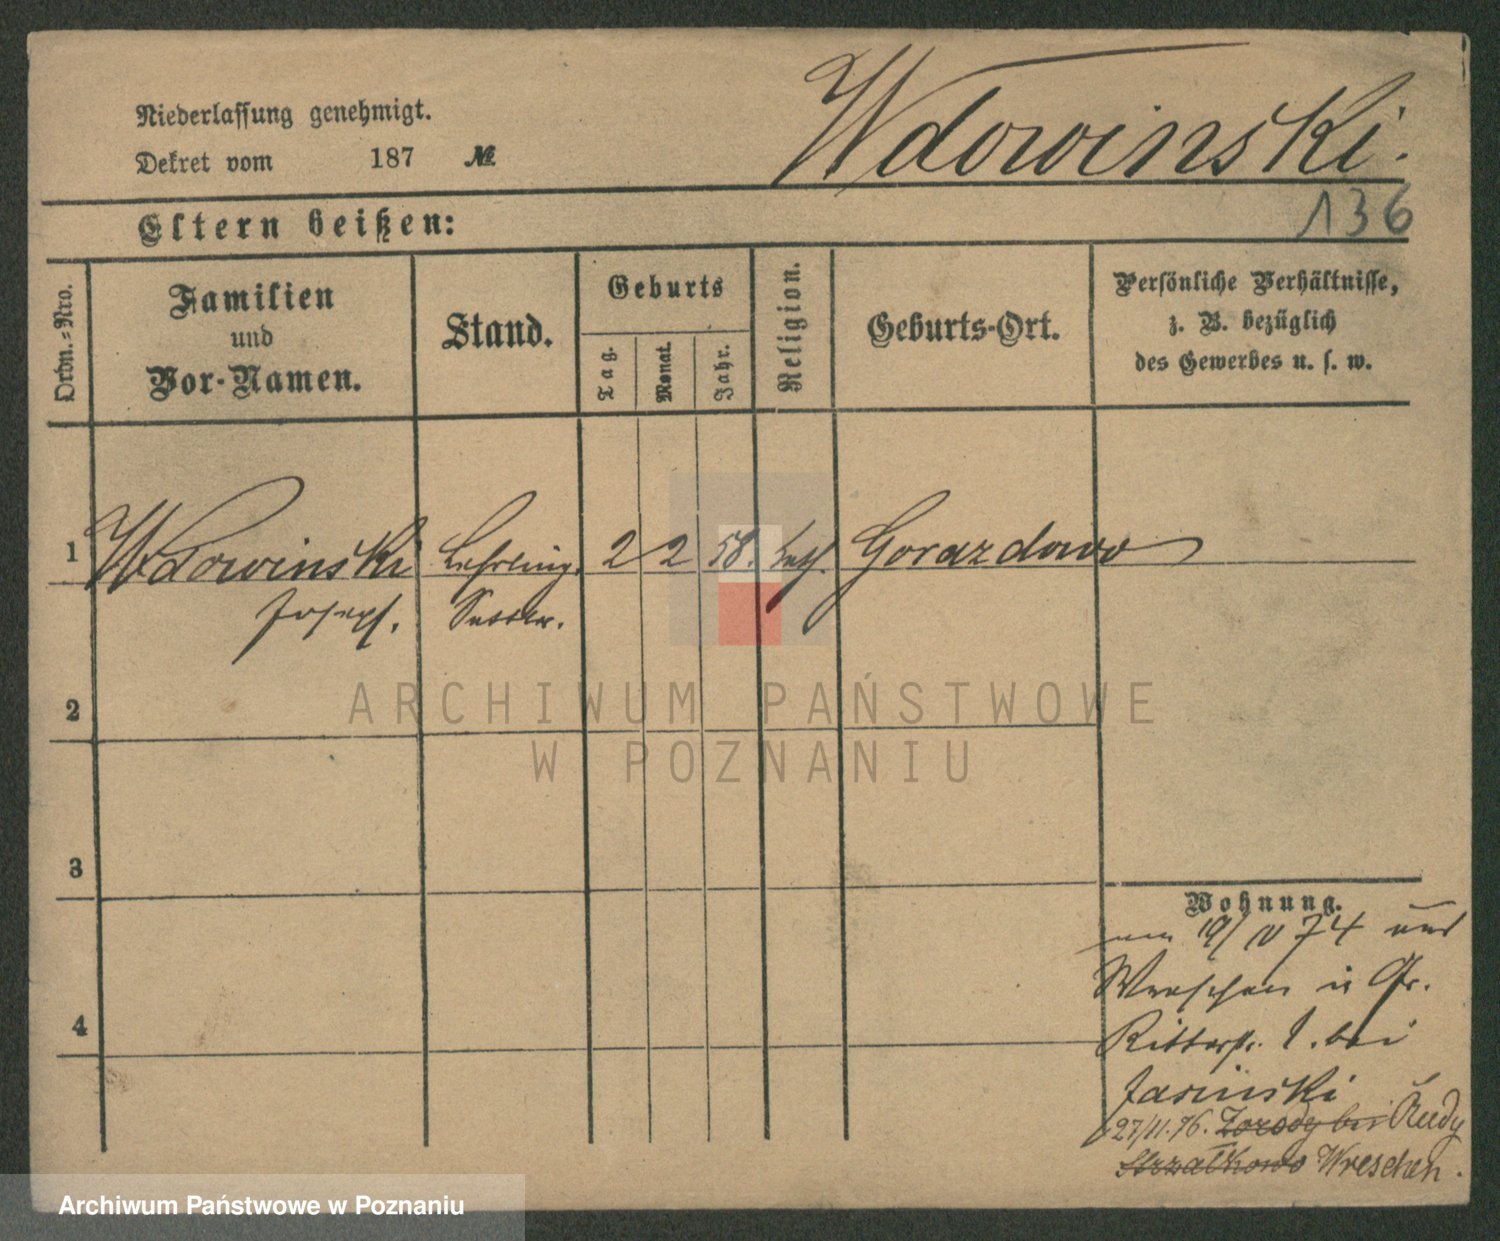 Wdowinski.
Niederlassung genehmigt.
Dekret vom 187 №
136
Eltern heißen:
Ordn.=Nro.
Familien
und
Vor-Namen.
Stand.
Geburts
Tag.
Monat.
Jahr.
Religion.
Geburts-Ort.
Persönliche Verhältnisse,
z. B. bezüglich
des Gewerbes u. s. w.
1 Wdowinski Lehrling. 2 2 58. kath. Gorazdowo
Joseph. Sattler.
2
3
4
Wohnung.
19/IV 74 aus
Wreschen
Ritterstr. 1. bei
Jasinski
27/11. 76. Zorody bei Rudy
Strzalkowo Wreschen.
ARCHIWUM PAŃSTWOWE
W POZNANIU
Archiwum Państwowe w Poznaniu